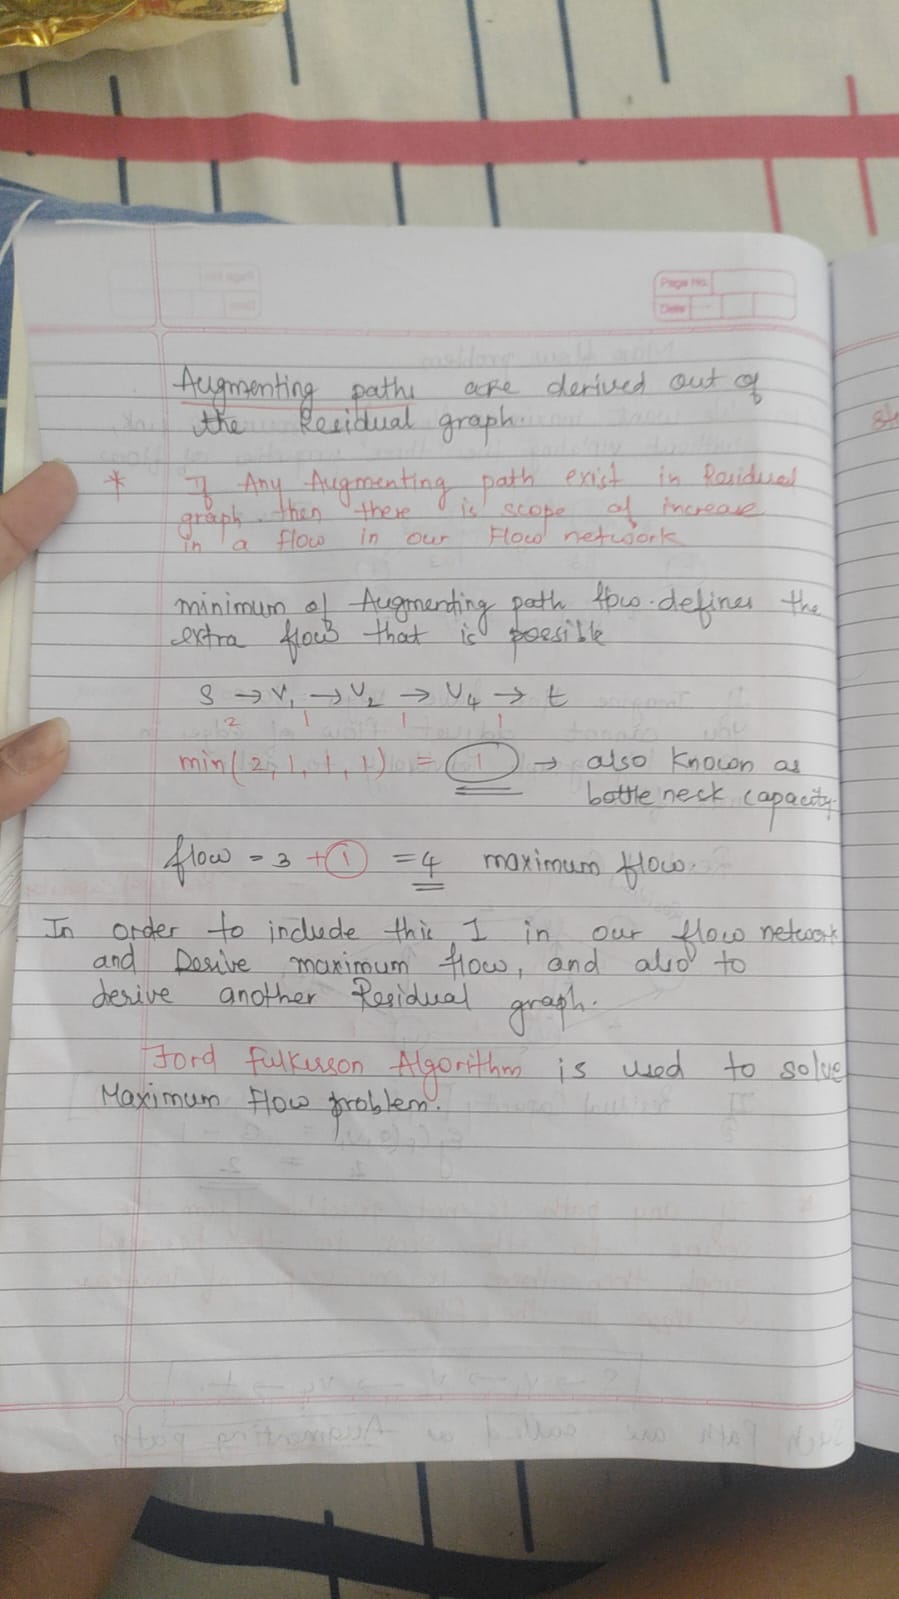 Page No.
Date
Augmenting paths are derived out of
the Residual graph.
* If Any Augmenting path exist in Residual
graph. then there is scope of increase
in a flow in our Flow network
minimum of Augmenting path flow defines the
extra flow that is possible
S → V1 → V2 → V4 → t
2 1 1 1
min(2, 1, 1, 1) = 1 → also known as
bottle neck capacity.
flow = 3 + 1 = 4 maximum flow.
In order to include this 1 in our flow network
and Derive maximum flow, and also to
derive another Residual graph.
Ford Fulkerson Algorithm is used to solve
Maximum Flow problem.